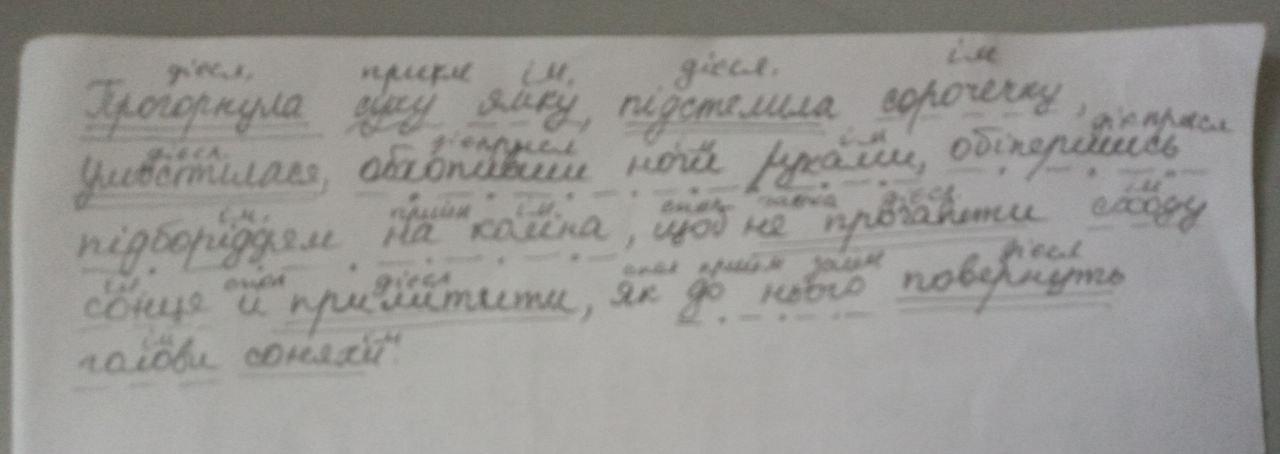 дієсл. прикм ім. дієсл. ім
Прогорнула суху ямку, підстелила сорочечку,
дієсл. дієприсл ім ім дієприсл
умостилася, обхопивши ноги руками, обіпершись
ім. прийм ім. спол частка дієсл ім
підборіддям на коліна, щоб не прогаяти сходу
ім спол дієсл спол прийм займ дієсл
сонця й примітити, як до нього повернуть
ім ім
голови соняхи.